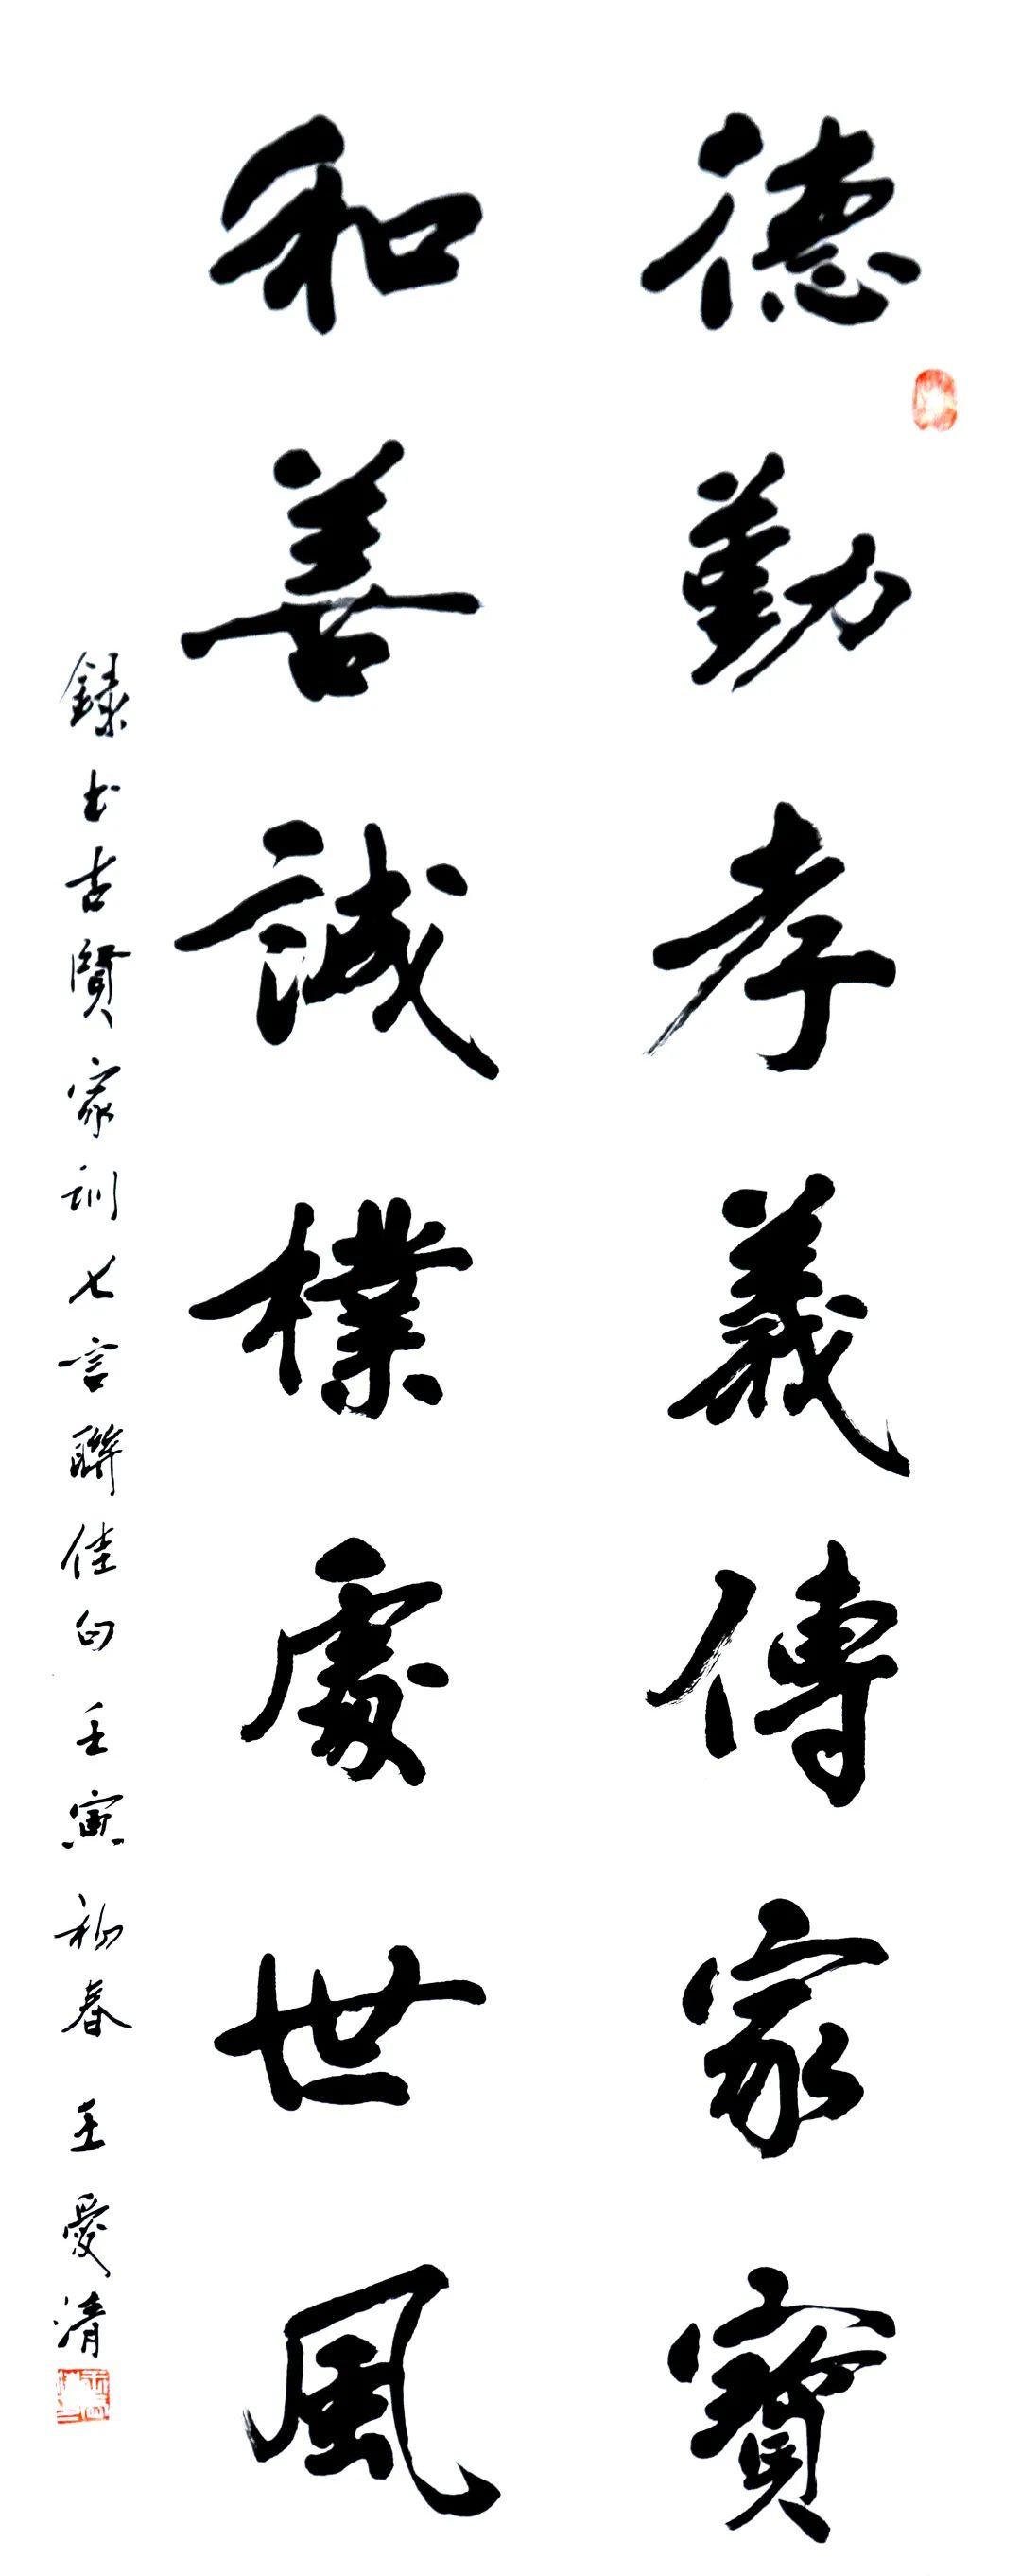 德勤孝義傳家寶
和善誠樸處世風
錄书古賢家訓七言聯佳句壬寅初春王愛清